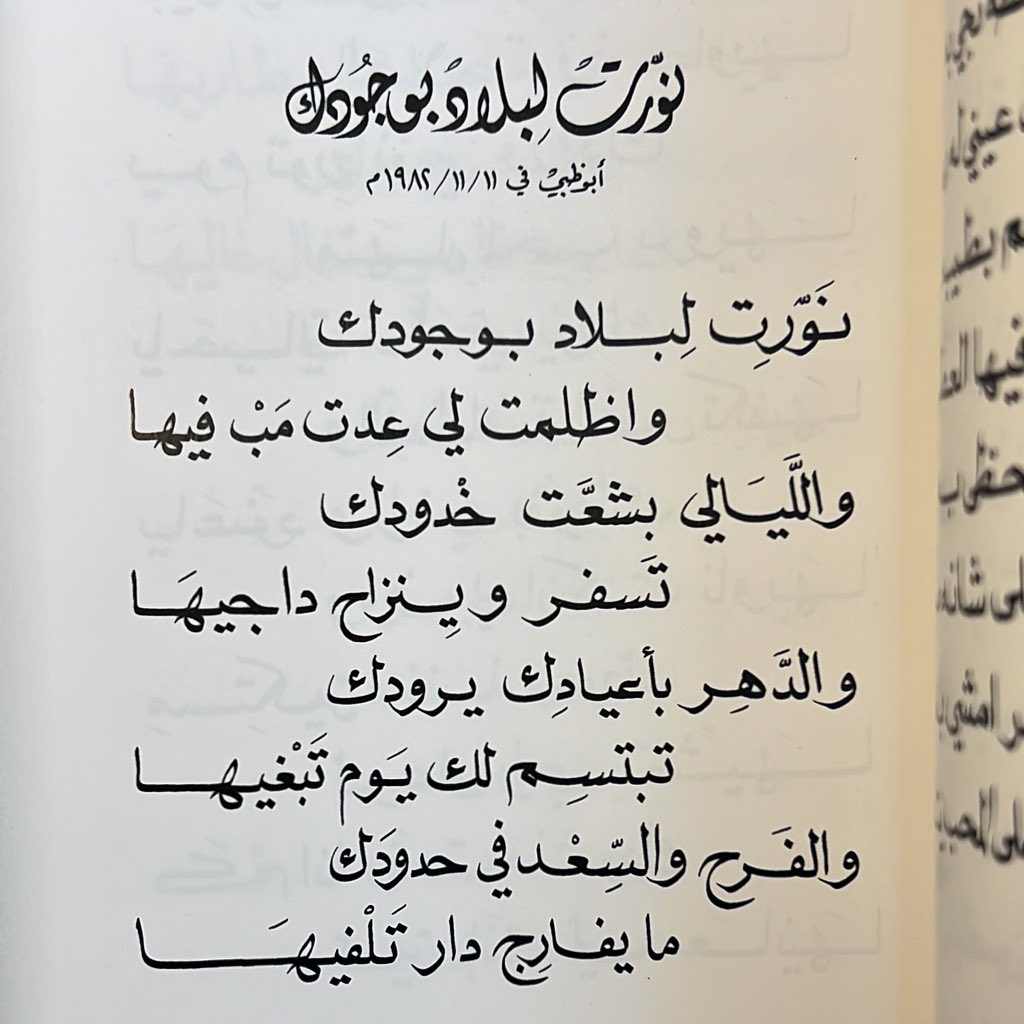 نوّرتْ لِبلادْ بوجُودك
أبوظبيْ في ١٩٨٢/١١/١١م
نَوّرِت لِبلاد بوجودك
واظلمت لي عِدت مَبْ فيها
واللَّيَالي بشعَّت خْدودك
تَسفر ويِنزاح داجيهَا
والدَّهِر بأعيادِك يرودك
تبتسِم لك يَوم تَبْغيها
والفَرح والسِّعْد في حدودَك
ما يفارِج دار تَلْفيهَا